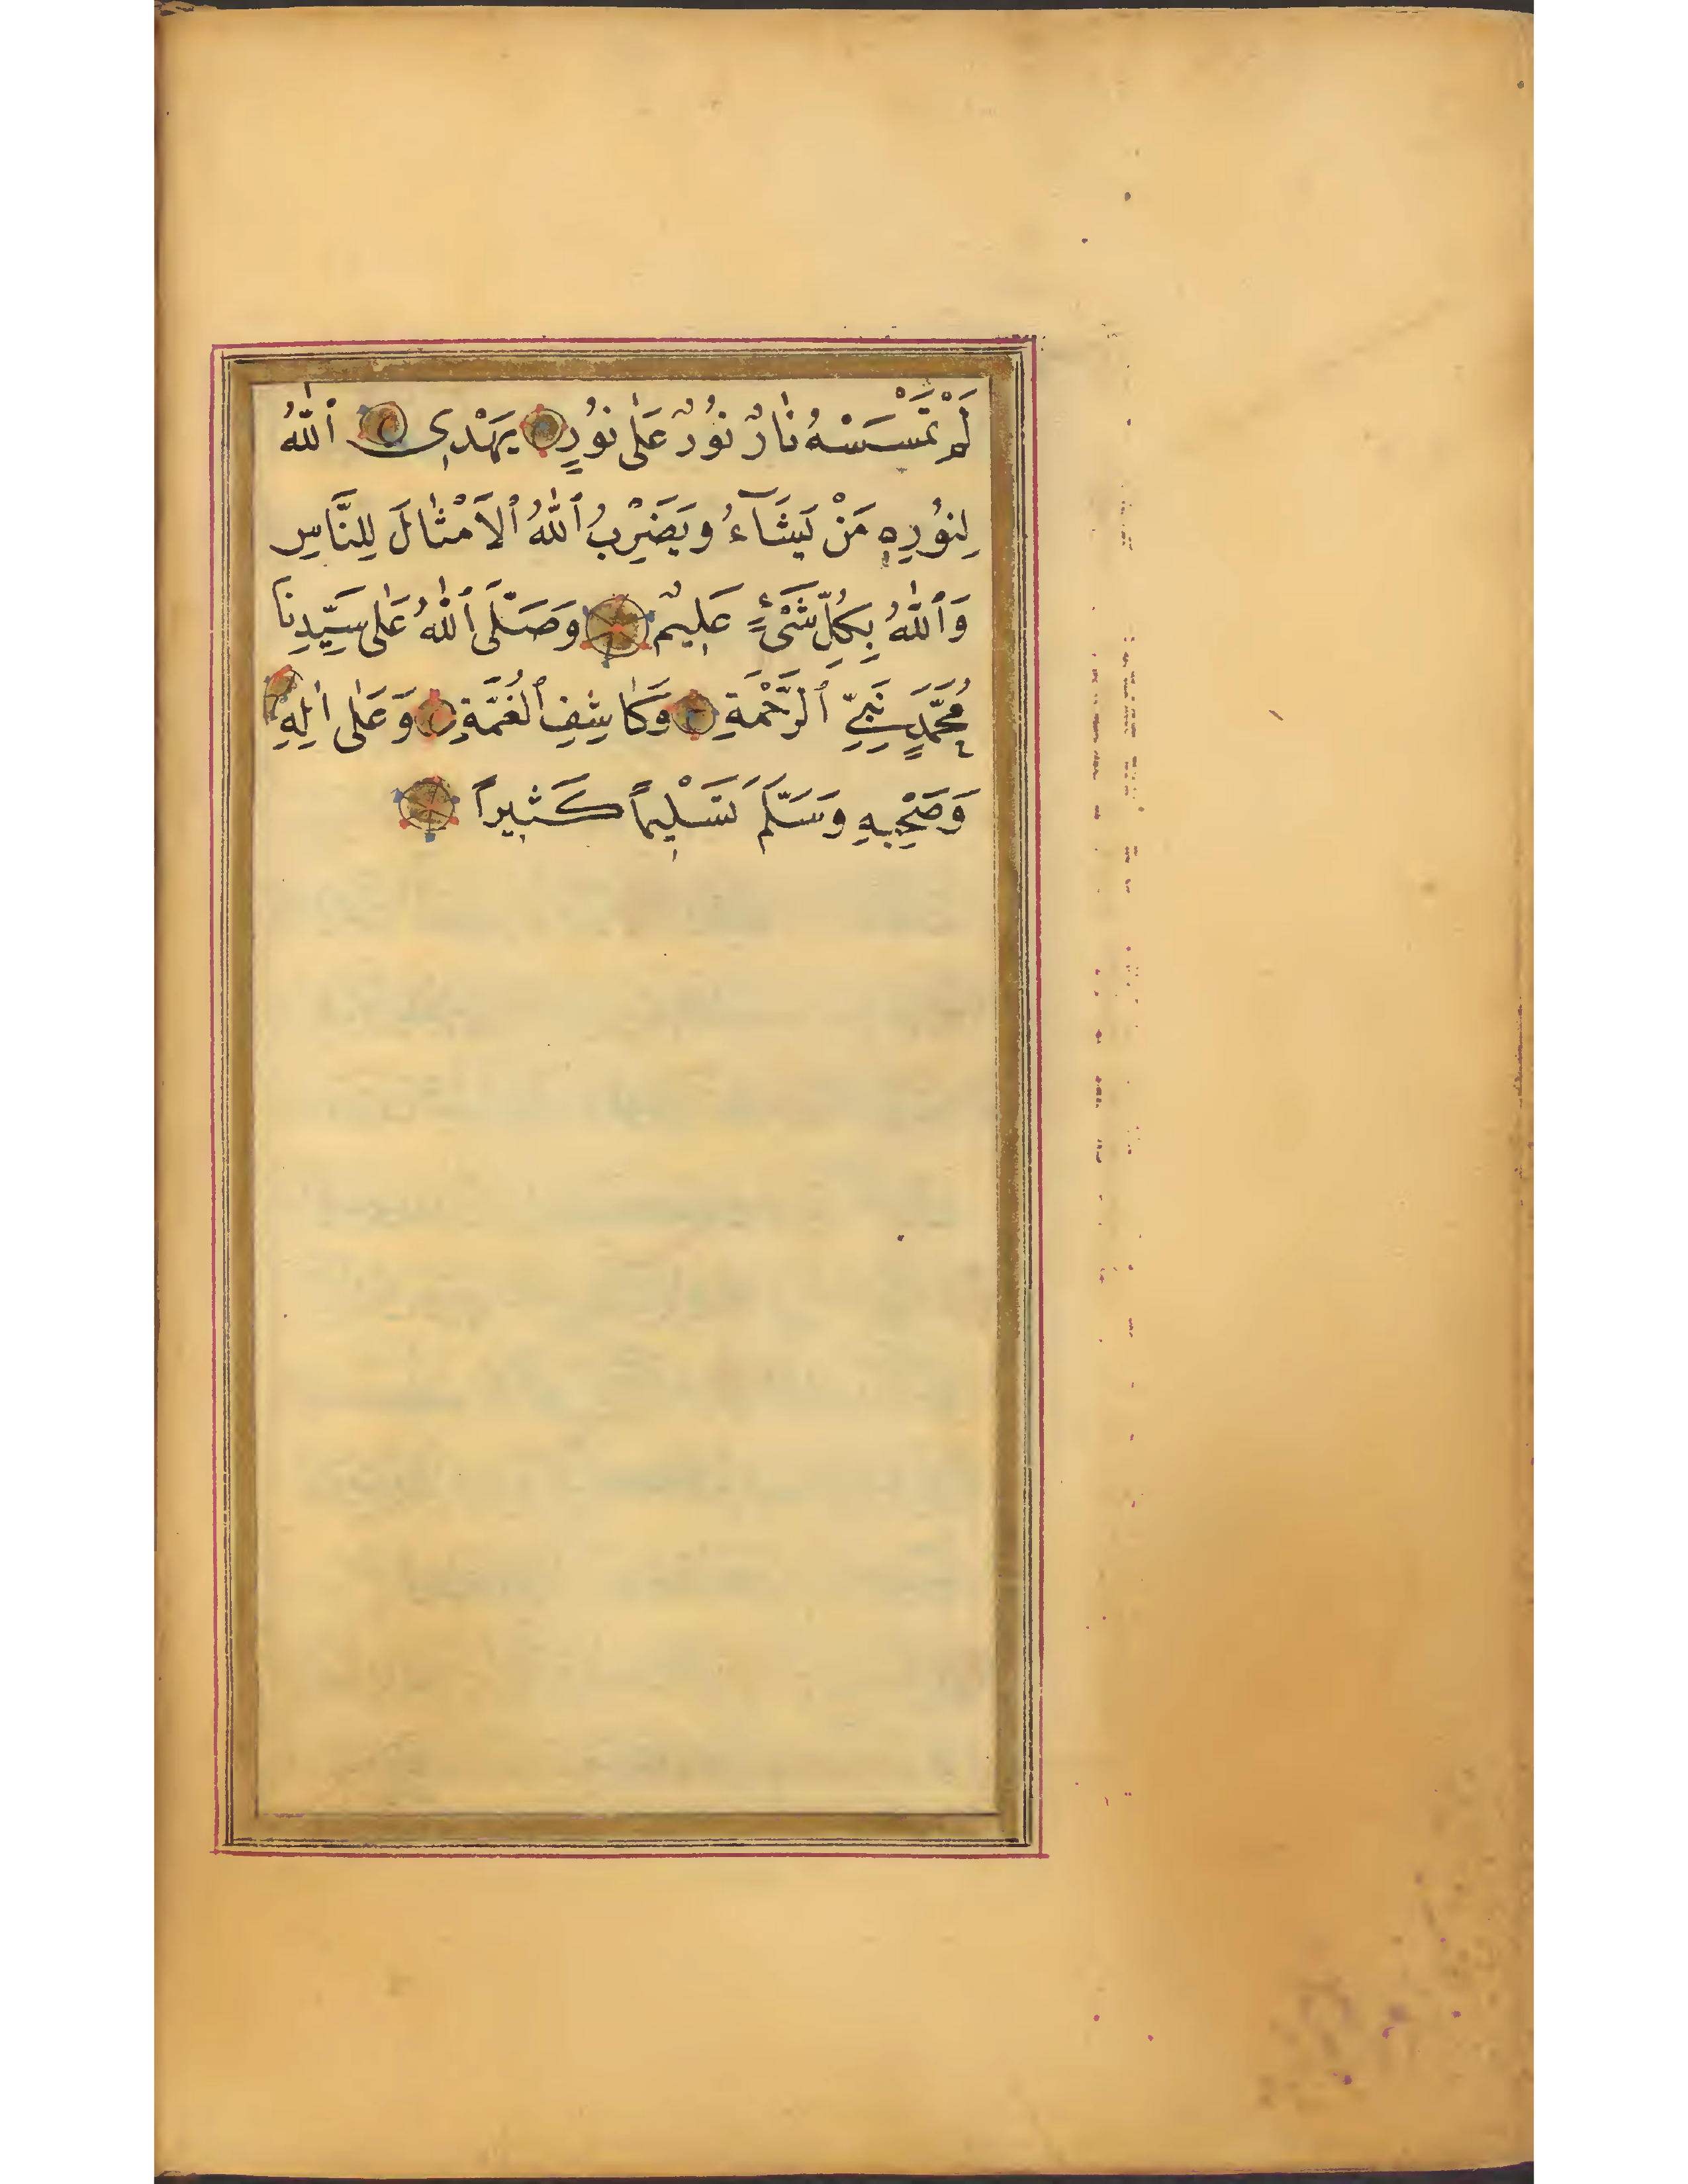 لَمْ تَمْسَسْهُ نَارٌ نُورٌ عَلٰى نُورٍ يَهْدِى ٱللّٰهُ
لِنُورِهٖ مَنْ يَشَآءُ وَيَضْرِبُ ٱللّٰهُ ٱلْاَمْثٰالَ لِلنَّاسِ
وَٱللّٰهُ بِكُلِّ شَىْءٍ عَلِيمٌ وَصَلَّى ٱللّٰهُ عَلٰى سَيِّدِنَا
مُحَمَّدٍ نَبِىِّ ٱلرَّحْمَةِ وَكَاشِفِ ٱلْغُمَّةِ وَعَلٰى اٰلِهِ
وَصَحْبِهِ وَسَلَّمَ تَسْلِيمًا كَثِيرًا